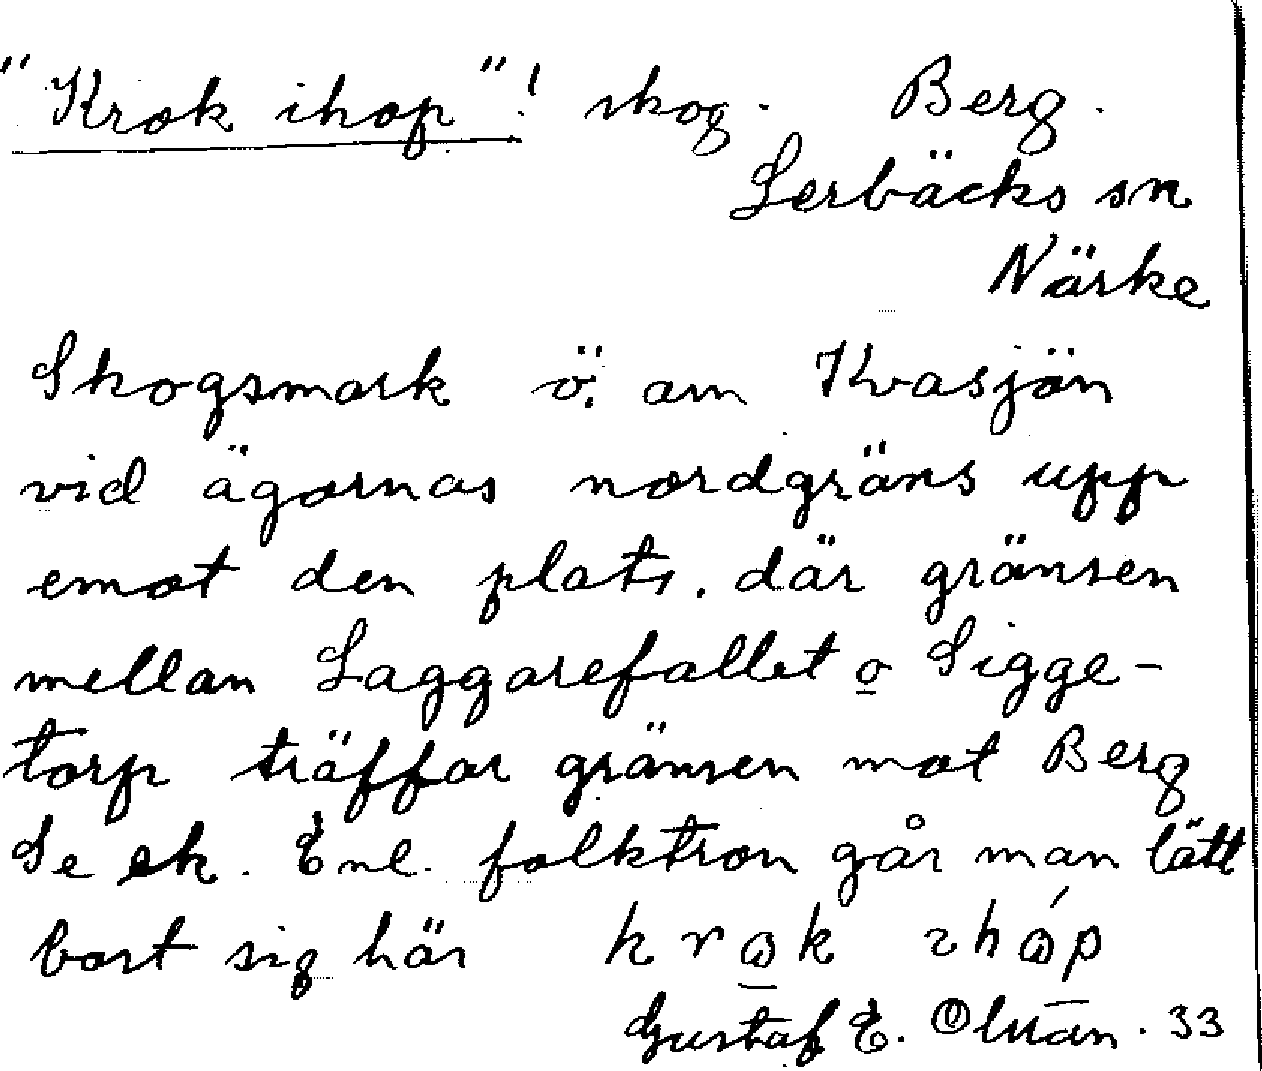 "Krok ihop"! skog. Berg.
Lerbäcks sn
Närke
Skogsmark ö. om Kvasjön
vid ägornas nordgräns upp
emot den plats, där gränsen
mellan Laggarefallet o Sigge-
torp träffar gränsen mot Berg
Se ek. Enl. folktron går man lätt
bort sig här
Gustaf E. Olsson. 33